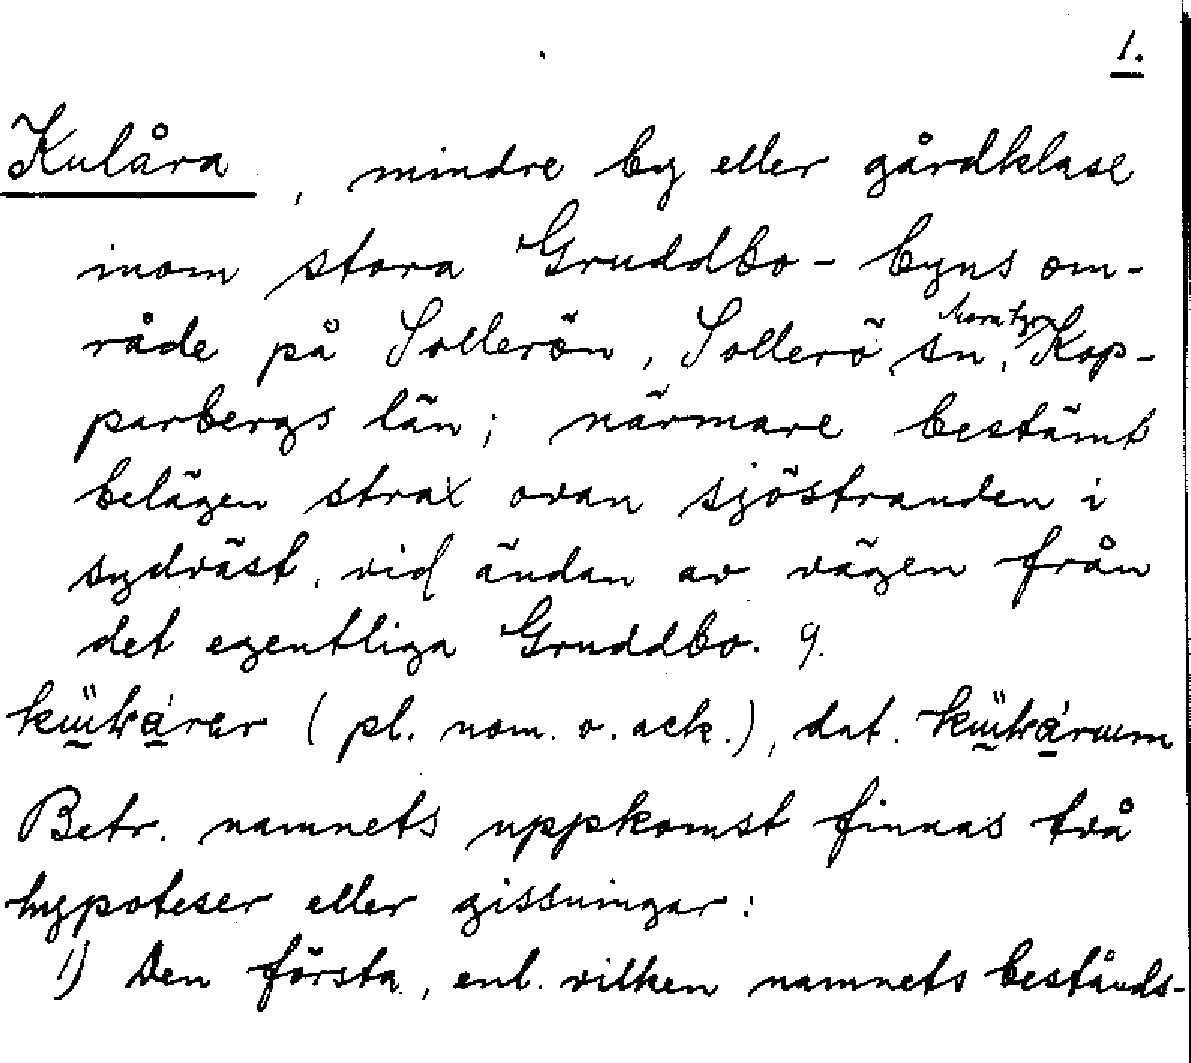 1.
Kulåra, mindre by eller gårdklase
inom stora Gruddbo-byns om-
råde på Sollerön, Sollerö sn, Kop-
parbergs län; närmare bestämt
belägen strax ovan sjöstranden i
sydväst, vid ändan av vägen från
det egentliga Gruddbo. 9.
(pl. nom. o. ack.), dat.
Betr. namnets uppkomst finnas två
hypoteser eller gissningar:
1) Den första, enl. vilken namnets bestånds-